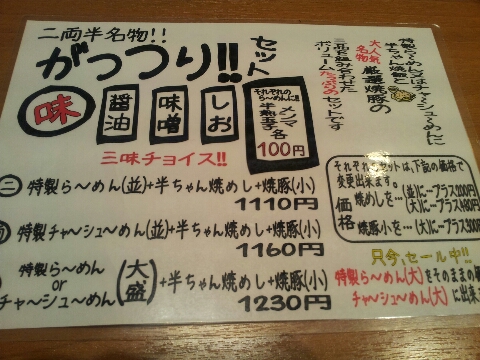 二両半名物!!
がっつり!!セット
特製ら〜めん又はチャ〜シュ〜めんに
半ちゃん焼飯と
大人気名物 厳選焼豚の
三品を組み合わせた
ボリュームたっぷりのセットです
味 醤油 味噌 しお
それぞれのら〜めんに!!
メンマ
半熟玉子各
100円
三味チョイス!!
㊁ 特製ら〜めん(並)+半ちゃん焼めし+焼豚(小)
1110円
特製チャ〜シュ〜めん(並)+半ちゃん焼めし+焼豚(小)
1160円
特製ら〜めん
or
チャ〜シュ〜めん
(大盛)+半ちゃん焼めし+焼豚(小)
1230円
それぞれのセットは、下記の価格で
変更出来ます。
価格
焼めしを…(並)に…プラス200円
(大)に…プラス480円
焼豚小を…(大)に…プラス300円
只今、セール中!!
特製ら〜めん(大)をそのままの
チャ〜シュ〜めん(大)に出来